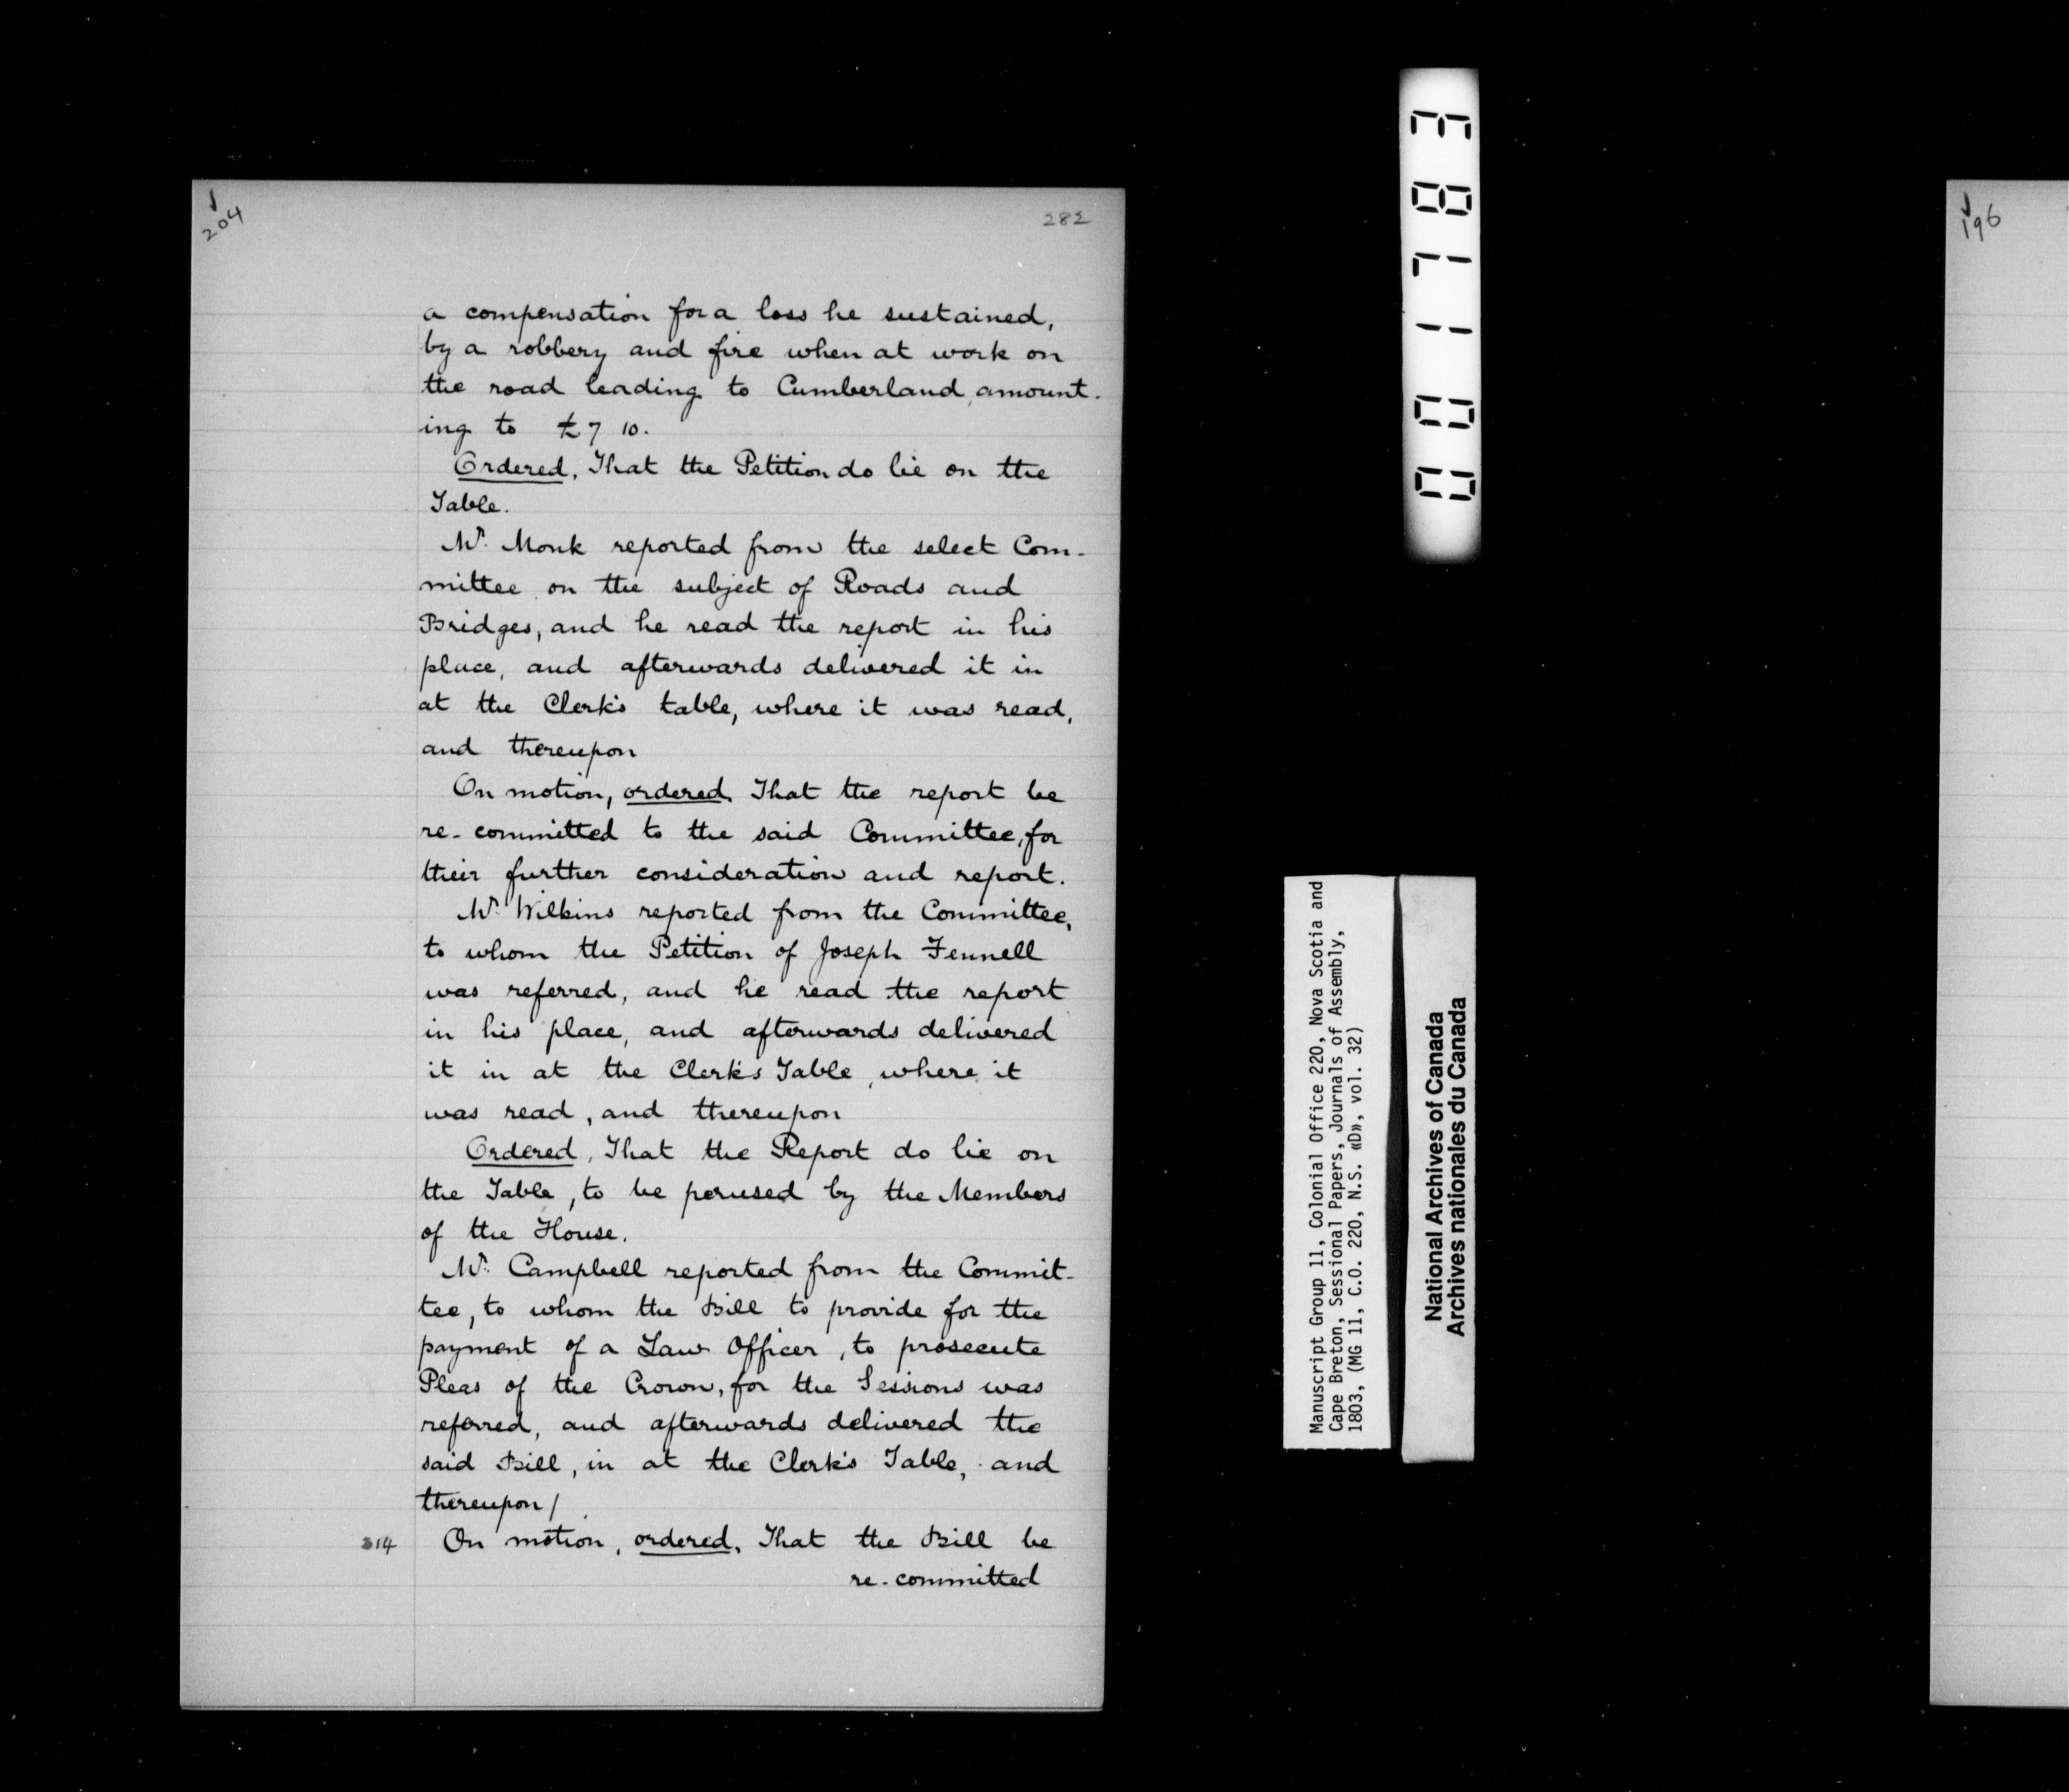 204
282
a compensation for a loss he sustained,
by a robbery and fire when at work on
the road leading to Cumberland, amount-
ing to £7 10.
Ordered, That the Petition do lie on the
Table.
Mr. Monk reported from the select Com-
mittee on the subject of Roads and
Bridges, and he read the report in his
place, and afterwards delivered it in
at the Clerk's table, where it was read,
and thereupon
On motion, ordered, That the report be
re-committed to the said Committee, for
their further consideration and report.
Mr. Wilkins reported from the Committee,
to whom the Petition of Joseph Fennell
was referred, and he read the report
in his place, and afterwards delivered
it in at the Clerk's Table, where it
was read, and thereupon
Ordered, That the Report do lie on
the Table, to be perused by the Members
of the House.
Mr. Campbell reported from the Commit-
tee, to whom the Bill to provide for the
payment of a Law Officer, to prosecute
Pleas of the Crown, for the Sessions was
referred, and afterwards delivered the
said Bill, in at the Clerk's Table, and
thereupon/
314 On motion, ordered, That the Bill be
re-committed
001783
Manuscript Group 11, Colonial Office 220, Nova Scotia and
Cape Breton, Sessional Papers, Journals of Assembly,
1803, (MG 11, C.O. 220, N.S. «D», vol. 32)
National Archives of Canada
Archives nationales du Canada
196